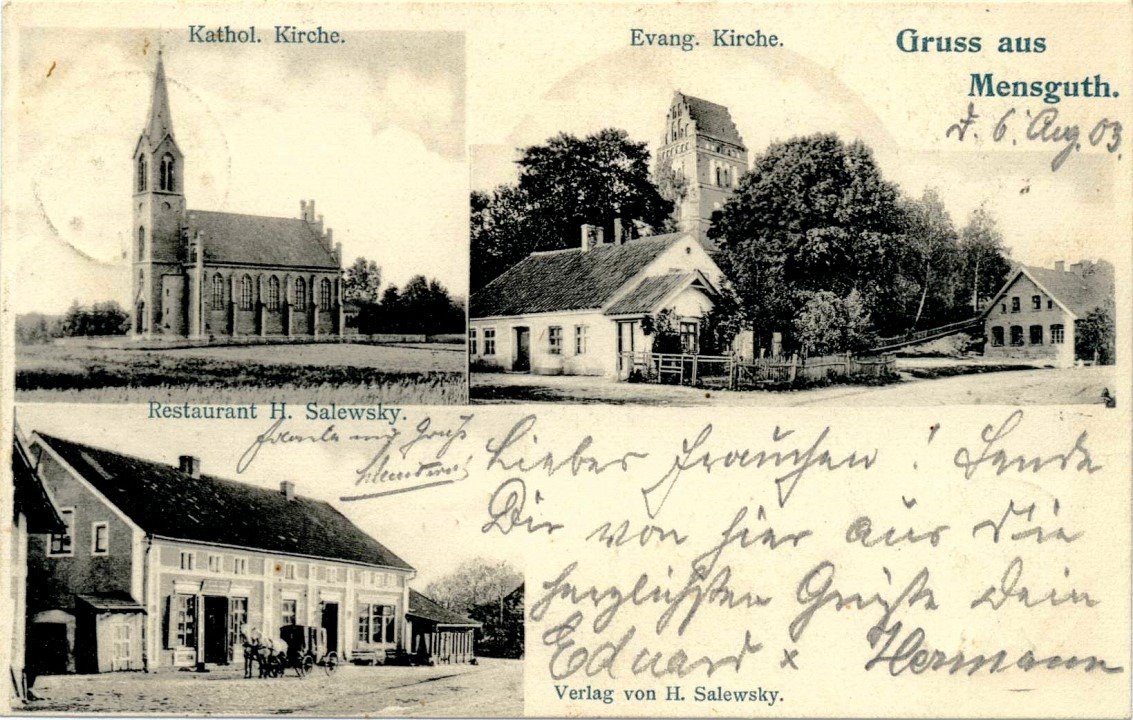 Kathol. Kirche.
Evang. Kirche.
Gruss aus
Mensguth.
d. 6. Aug. 03.
Restaurant H. Salewsky.
Gruß
Liebes Frauchen! Sende
Dir von hier aus die
herzlichsten Grüße Dein
Eduard x Hermann
Verlag von H. Salewsky.